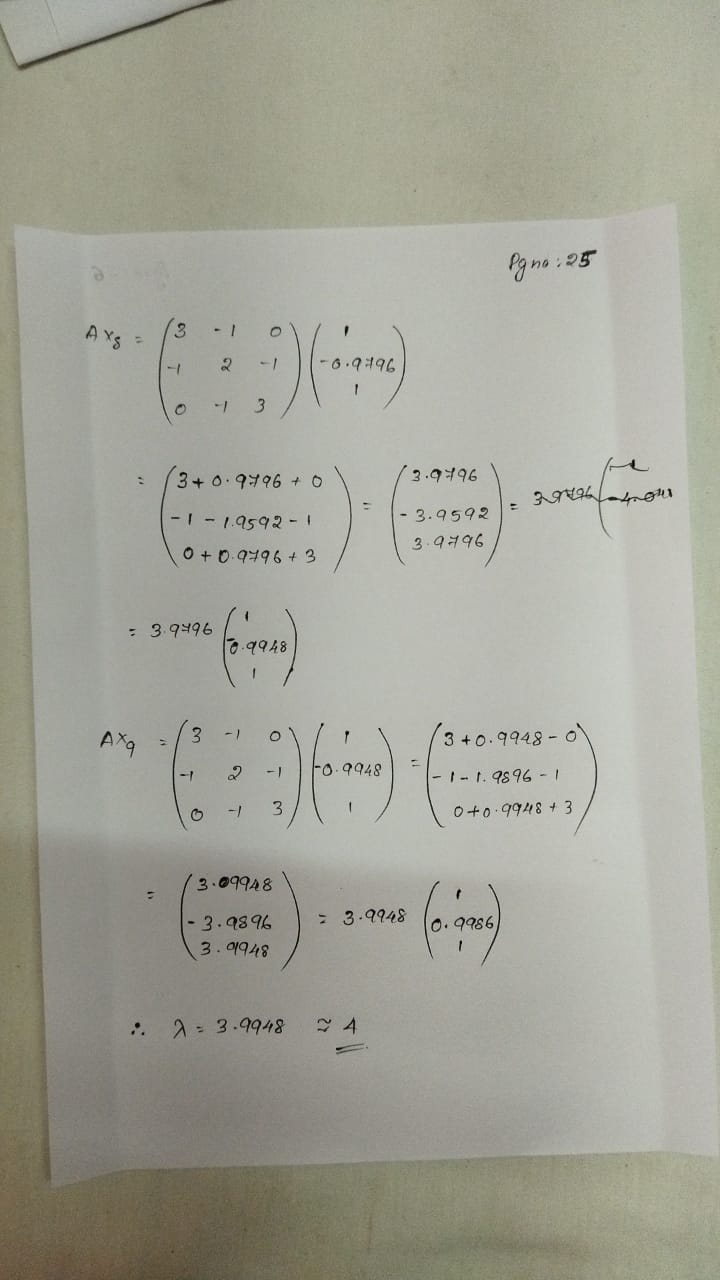 Pg no : 25
A x₈ = (3 -1 0
-1 2 -1
0 -1 3) (1
-0.9796
1)
= (3 + 0.9796 + 0
-1 - 1.9592 - 1
0 + 0.9796 + 3) = (3.9796
-3.9592
3.9796) = 3.9796
= 3.9796 (1
-0.9948
1)
A x₉ = (3 -1 0
-1 2 -1
0 -1 3) (1
-0.9948
1) = (3 + 0.9948 - 0
-1 - 1.9896 - 1
0 + 0.9948 + 3)
= (3.09948
-3.9896
3.9948) = 3.9948 (1
0.9986
1)
∴ λ = 3.9948 ≈ 4